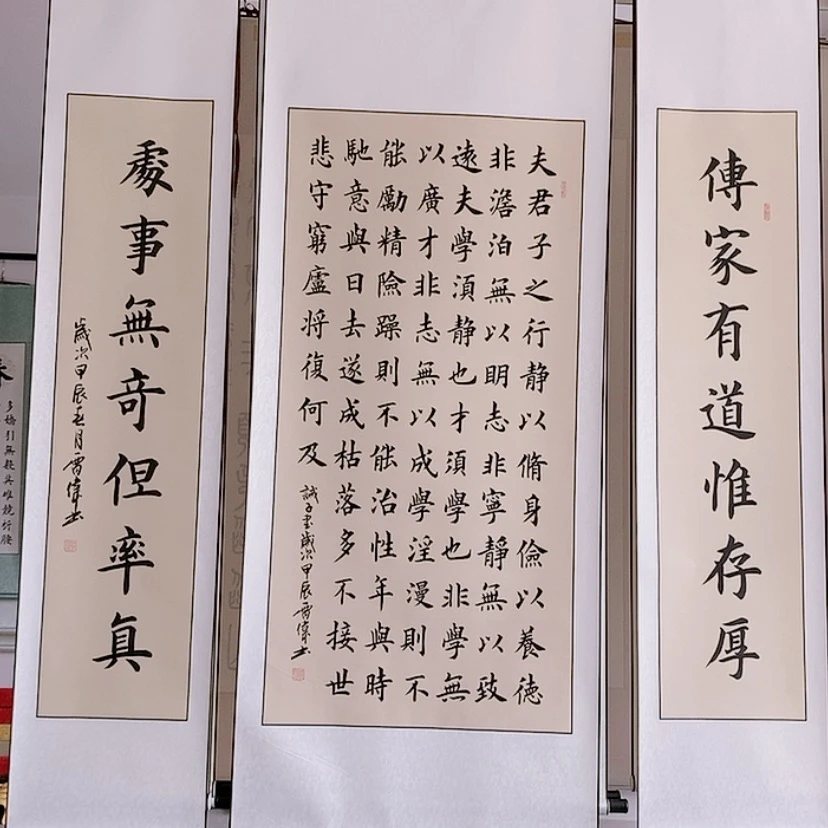 傳家有道惟存厚
夫君子之行静以脩身儉以養徳
非澹泊無以明志非寧靜無以致
遠夫學須静也才須學也非學無
以廣才非志無以成學淫漫則不
能勵精險躁則不能治性年與時
馳意與日去遂成枯落多不接世
悲守窮廬將復何及
誡子書歲次甲辰雷偉书
處事無奇但率真
歲次甲辰春月雷偉书
多嬌引無數英雄競折腰